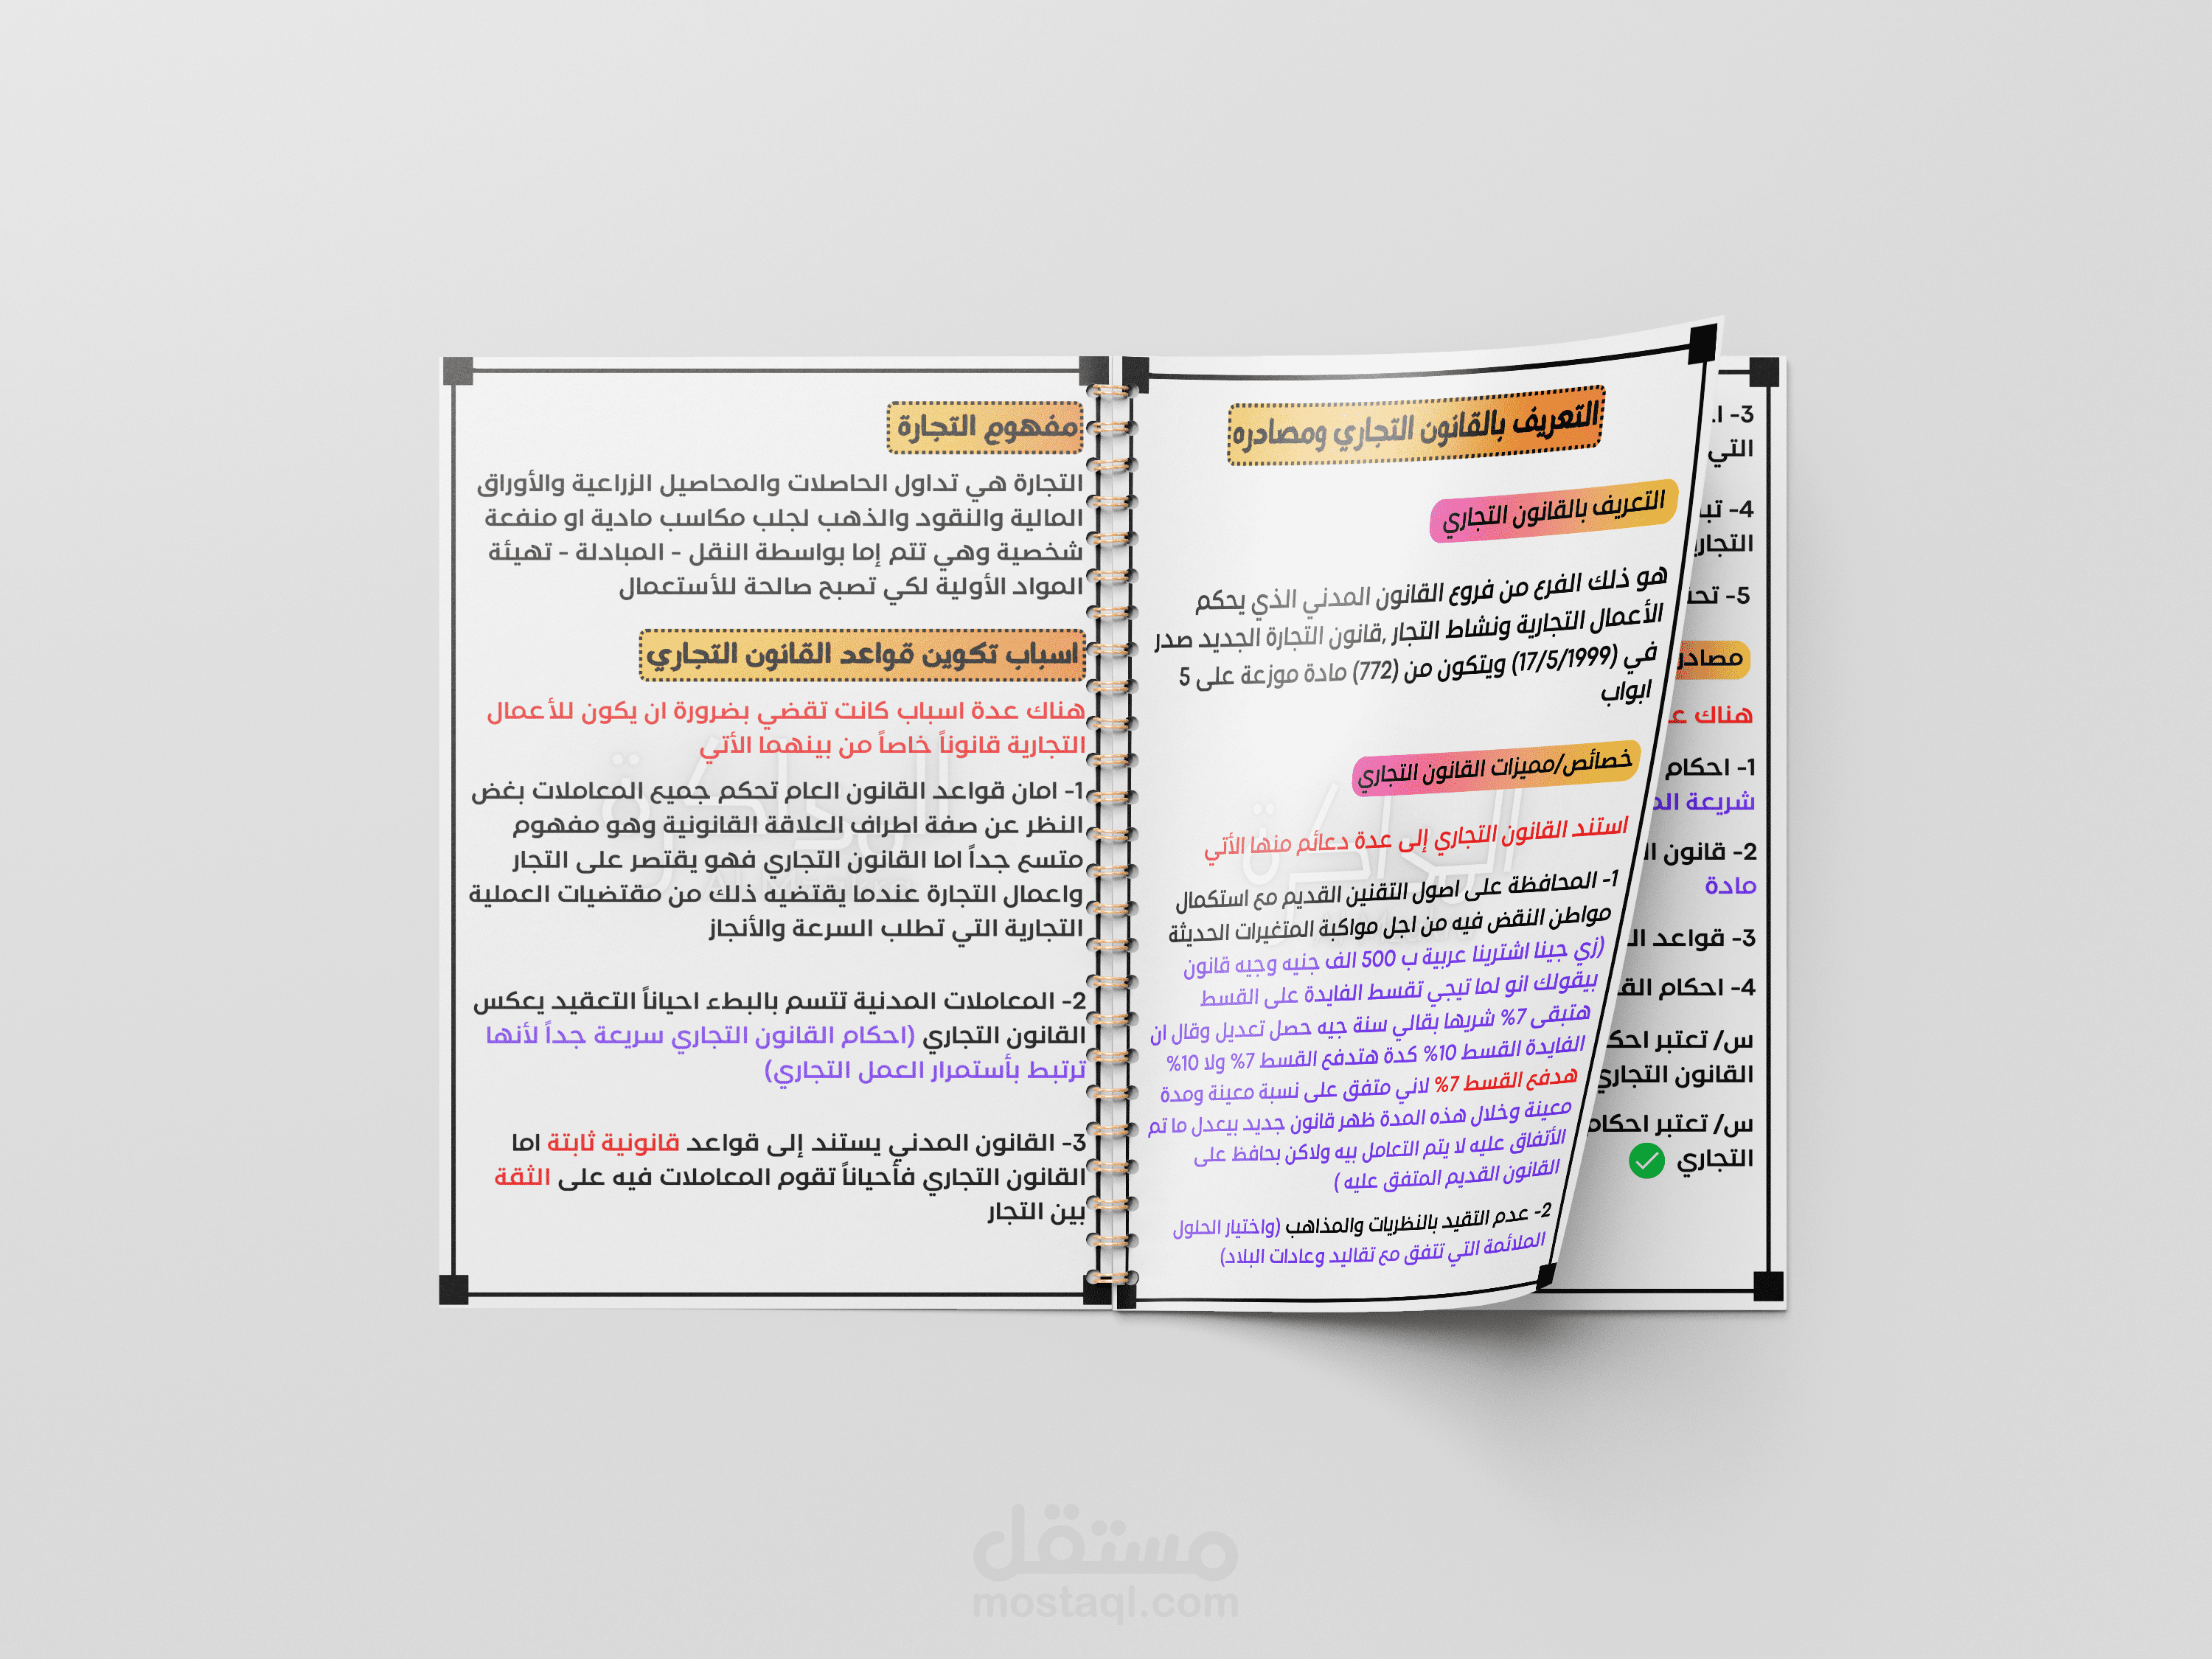 التعريف بالقانون التجاري ومصادره
التعريف بالقانون التجاري
هو ذلك الفرع من فروع القانون المدني الذي يحكم
الأعمال التجارية ونشاط التجار ,قانون التجارة الجديد صدر
في (17/5/1999) ويتكون من (772) مادة موزعة على 5
ابواب
خصائص/مميزات القانون التجاري
استند القانون التجاري إلى عدة دعائم منها الأتي
1- المحافظة على اصول التقنين القديم مع استكمال
مواطن النقض فيه من اجل مواكبة المتغيرات الحديثة
(زي جينا اشترينا عربية ب 500 الف جنيه وجيه قانون
بيقولك انو لما تيجي تقسط الفايدة على القسط
هتبقى 7% شريها بقالي سنة جيه حصل تعديل وقال ان
الفايدة القسط 10% كدة هتدفع القسط 7% ولا 10%
هدفع القسط 7% لاني متفق على نسبة معينة ومدة
معينة وخلال هذه المدة ظهر قانون جديد بيعدل ما تم
الأتفاق عليه لا يتم التعامل بيه ولاكن بحافظ على
القانون القديم المتفق عليه )
2- عدم التقيد بالنظريات والمذاهب (واختيار الحلول
الملائمة التي تتفق مع تقاليد وعادات البلاد)
مفهوم التجارة
التجارة هي تداول الحاصلات والمحاصيل الزراعية والأوراق
المالية والنقود والذهب لجلب مكاسب مادية او منفعة
شخصية وهي تتم إما بواسطة النقل - المبادلة - تهيئة
المواد الأولية لكي تصبح صالحة للأستعمال
اسباب تكوين قواعد القانون التجاري
هناك عدة اسباب كانت تقضي بضرورة ان يكون للأعمال
التجارية قانوناً خاصاً من بينهما الأتي
1- امان قواعد القانون العام تحكم جميع المعاملات بغض
النظر عن صفة اطراف العلاقة القانونية وهو مفهوم
متسع جداً اما القانون التجاري فهو يقتصر على التجار
واعمال التجارة عندما يقتضيه ذلك من مقتضيات العملية
التجارية التي تطلب السرعة والأنجاز
2- المعاملات المدنية تتسم بالبطء احياناً التعقيد يعكس
القانون التجاري (احكام القانون التجاري سريعة جداً لأنها
ترتبط بأستمرار العمل التجاري)
3- القانون المدني يستند إلى قواعد قانونية ثابتة اما
القانون التجاري فأحياناً تقوم المعاملات فيه على الثقة
بين التجار
3-
التي
4-
5-
هناك
1- احكام
شريعة
2- قانون
مادة
3- قواعد
4- احكام
س/ تعتبر
القانون التجاري
س/ تعتبر احكام
التجاري
مستقل
mostaql.com